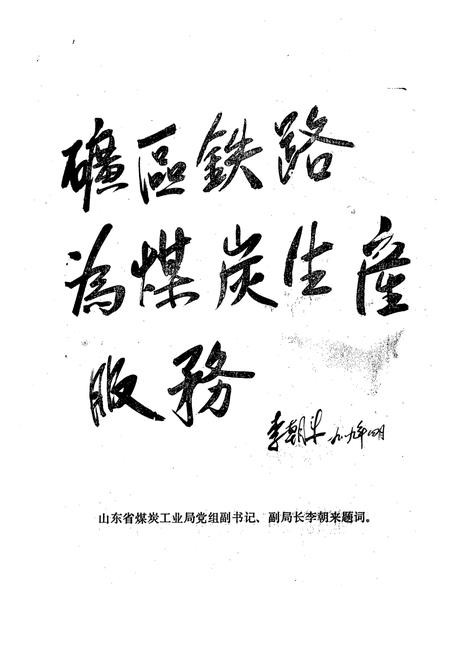 礦區鉄路
為煤炭生產
服務
李朝来 九〇年四月
山东省煤炭工业局党组副书记、副局长李朝来题词。